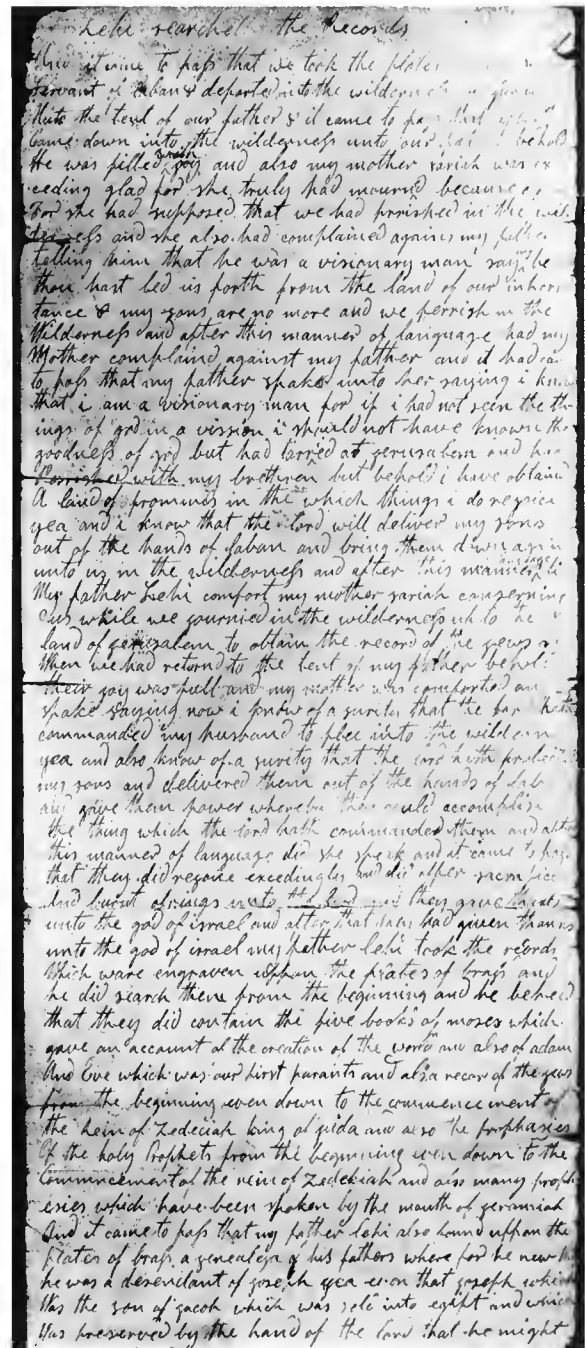 Lehi searchet the Records
And it came to pass that we took the plates
servant of laban & departed into the wilderness
Unto the tent of our father & it came to pass that
Came down into the wilderness unto our behold
He was filled with joy and also my mother sariah was ex
ceeding glad for she truly had mournd because
For she had supposed that we had perrished in the wil
derness and she also had complained against my father
telling him that he was a visionary man saying be
thou hast led us forth from the land of our inheri
tance & my sons are no more and we perrish in the
Wilderness and after this manner of languege had my
Mother complaind against my father and it had
to pass that my father spake unto her saying i know
that i am a visionary man for if i had not seen the th
ings of god in a vission i should not have known the
goodness of god but had tarred at jerusalem and
Perrished with my brethren but behold i have obtaind
A land of promis in the which things i do rejoice
yea and i know that the lord will deliver my sons
out of the hands of laban and bring them down again
unto us in the wilderness and after this manner
My father Lehi comfort my mother sariah conserning
us while we journied in the wilderness up to the
land of jerusalem to obtain the record of the jews
When we had returnd to the tent of my father behold
their joy was full and my mother was comforted
spake saying now i know of a surity that the hath
commanded my husband to flee into the wildern
yea and also know of a surity that the lord hath
my sons and delivered them out of the hands of lab
and gave them power whereby could accomplish
the thing which the lord hath commanded them and after
this manner of language did she speak and it came to pass
that they did rejoice exceedingly and did offer sacrifice
And burnt offrings unto the lord and they gave thanks
unto the god of israel and after that they had given thanks
unto the god of israel my father lehi took the records
Which ware engraven uppon the plates of brass and
he did search them from the beginning and he beheld
that they did contain the five books of moses which
gave an account of the creation of the world and also of adam
And Eve which was our first parants and also a recor of the jews
from the beginning even down to the commencement of
the rein of Zedeciah king of juda and also the prophasies
Of the holy Prophets from the beginning even down to the
Commencement of the rein of Zedekiah and also many proph
esies which have been spoken by the mouth of jeramiah
And it came to pass that my father lehi also found uppon the
plates of brass a genealogy of his fathers where for he new
he was a desendant of joseph yea even that joseph which
Was the son of jacob which was sold into egipt and which
Was preserved by the hand of the lord that he might